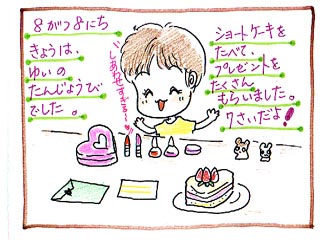 8がつ8にち
きょうは、
ゆいの
たんじょうび
でした。
しあわせすぎる…
ショートケーキを
たべて、
プレゼントを
たくさん
もらいました。
7さいだよ!